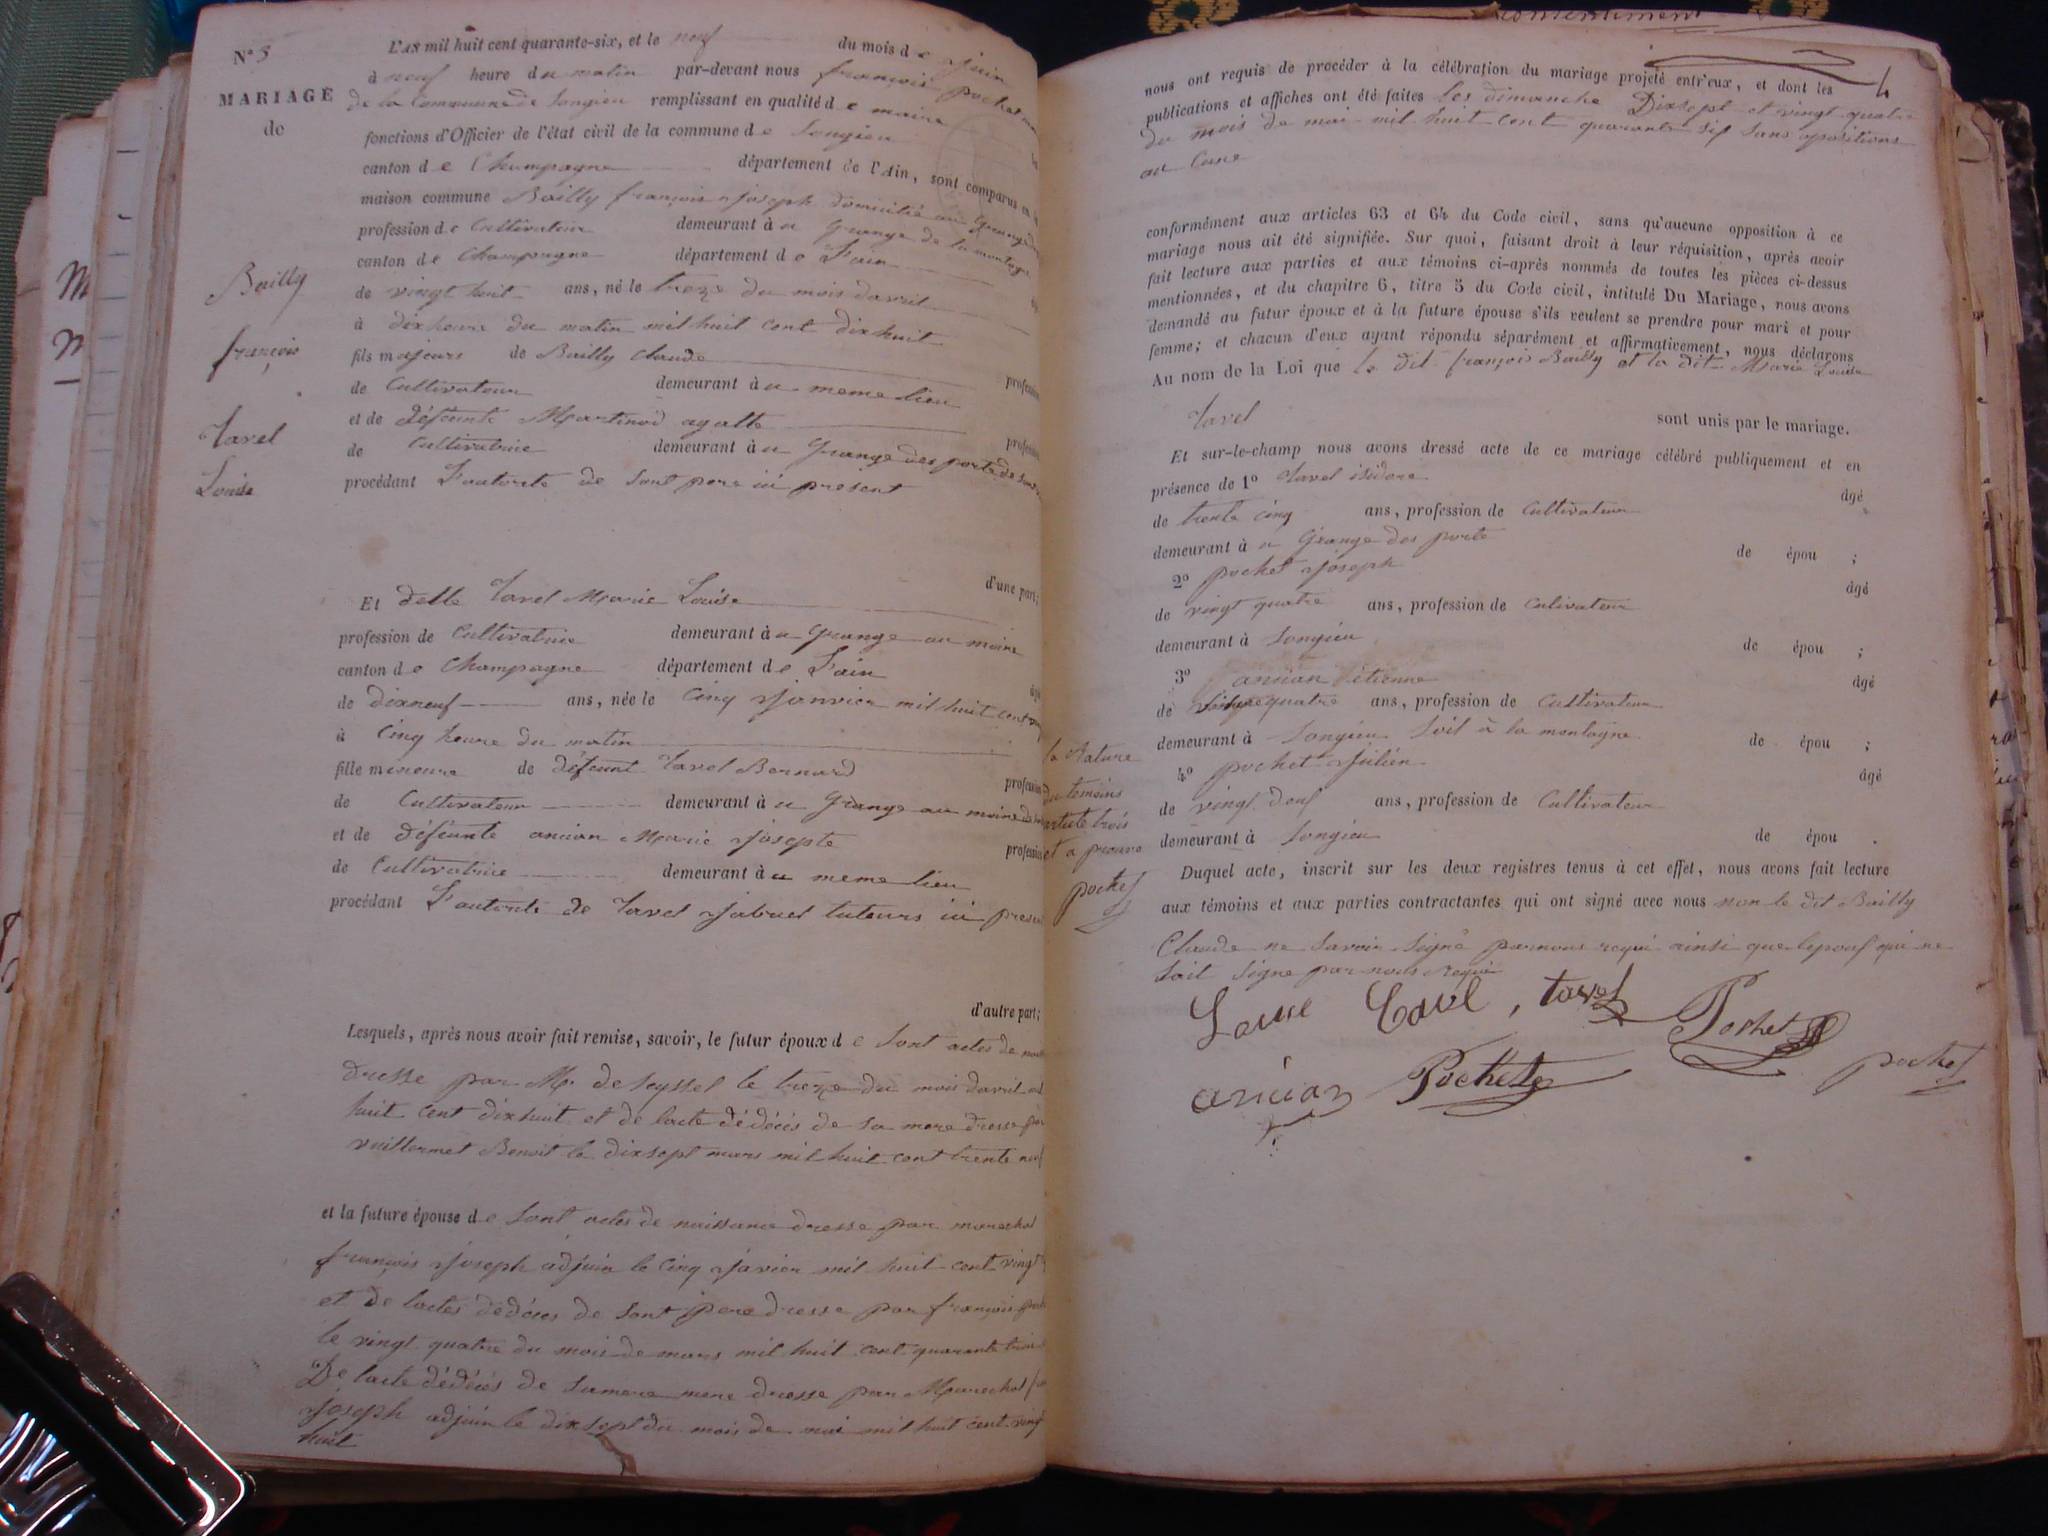 N° 3
MARIAGE
de
Bailly
françois
Tavel
Louise
L'AN mil huit cent quarante-six, et le neuf du mois de Juin
à neuf heure du matin par-devant nous françois pochet
de la Commune de Songieu remplissant en qualité de maire
fonctions d'Officier de l'état civil de la commune de Songieu
canton de Champagne département de l'Ain, sont comparus en la
maison commune Bailly françois Joseph domicilié au Grange
profession de Cultivateur demeurant à u Grange de la montagne
canton de Champagne département de L'ain
de vingt huit ans, né le treze du mois davril
à dix heure du matin mil huit cent dixhuit
fils majeure de Bailly Claude
profession
de Cultivateur demeurant à u meme lieu
et de défeunte Martinod agatte
profession
de Cultivatrice demeurant à u Grange des porte de
procédant L'autorité de sont pere ici présent
d'une part;
Et delle Tavel Marie Louise
profession de Cultivatrice demeurant à u Grange au moine
canton de Champagne département de L'ain
de dixneuf ans, née le Cinq Janvier mil huit cent
à Cinq heure du matin
fille mineure de défeunt Tavel Bernard
profession
de Cultivateur demeurant à u Grange au moine
et de déféunte ancian Marie Josepte
profession
de Cultivatrice demeurant à u meme lieu
procédant L'autorité de Tavel Jabriel tuteurs ici présent
d'autre part;
Lesquels, après nous avoir fait remise, savoir, le futur époux de sont actes de
dresse par Mr de Seyssel le treze du mois davril mil
huit cent dixhuit et de lacte dédécés de sa mere dresse par
vuillermet Benoit le dixsept mars mil huit cent trente neuf
et la future épouse de sont actes de naissance dresse par marechal
françois Joseph adjoin le Cinq Javier mil huit cent vingt
et de lactes dédéces de sont pere dresse par françois
le vingt quatre du mois de mars mil huit cent quarante trois
De lacte dédécés de sa mere dresse par Marechal
Joseph adjoin le dixsept du mois de mai mil huit cent vingt
huit
4
nous ont requis de procéder à la célébration du mariage projeté entr'eux, et dont les
publications et affiches ont été faites les dimanche Dixsept et vingt quatre
du mois de mai mil huit cent quarante six sans opositions
au Cune
conformément aux articles 63 et 64 du Code civil, sans qu'aucune opposition à ce
mariage nous ait été signifiée. Sur quoi, faisant droit à leur réquisition, après avoir
fait lecture aux parties et aux témoins ci-après nommés de toutes les pièces ci-dessus
mentionnées, et du chapitre 6, titre 5 du Code civil, intitulé Du Mariage, nous avons
demandé au futur époux et à la future épouse s'ils veulent se prendre pour mari et pour
femme; et chacun d'eux ayant répondu séparément et affirmativement, nous déclarons
Au nom de la Loi que le dit françois Bailly et la dit Marie Louise
Tavel sont unis par le mariage.
Et sur-le-champ nous avons dressé acte de ce mariage célébré publiquement et en
présence de 1° Tavel isidore âgé
de trente cinq ans, profession de Cultivateur
demeurant à u Grange des porte de épou ;
2° pochet Joseph âgé
de vingt quatre ans, profession de Cultivateur
demeurant à Songieu de épou ;
3° ancian étienne âgé
de quatre ans, profession de Cultivateur
demeurant à Songieu Soit à la montagne de épou ;
4° pochet Julien âgé
de vingt deuf ans, profession de Cultivateur
demeurant à Songieu de épou .
la Rature
du témoins
article trois
et a prouvé
pochet
Duquel acte, inscrit sur les deux registres tenus à cet effet, nous avons fait lecture
aux témoins et aux parties contractantes qui ont signé avec nous non le dit Bailly
Claude ne savoir signé parnous requi ainsi que lepouf qui ne
sait signe par nous requi
Louise Tavel, tavel Pochet
ancian Pochet pochet